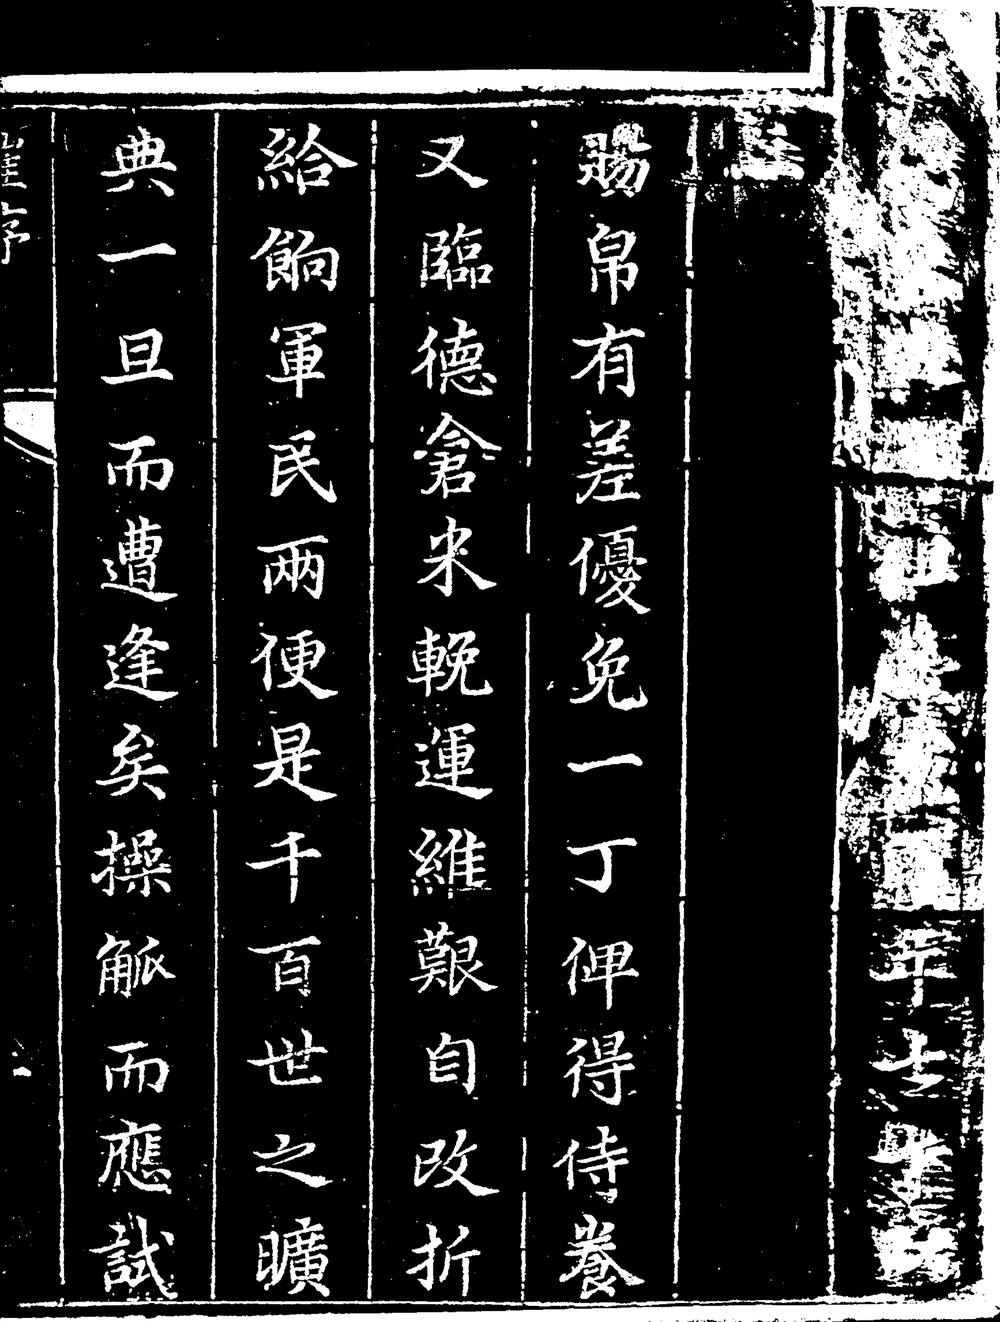 賜帛有差優免一丁俾得侍養
又臨德倉米輓運維艱自改折
給餉軍民兩便是千百世之曠
典一旦而遭逢矣操觚而應試
序